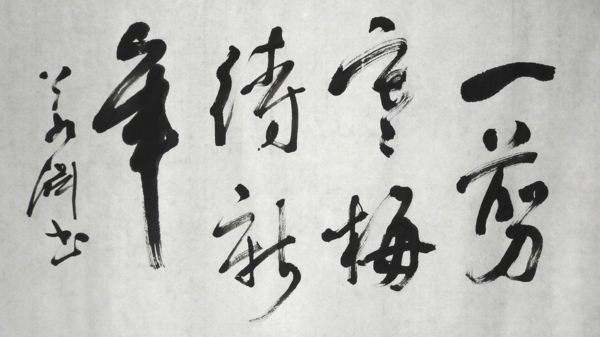 一剪
寒梅
待新
年